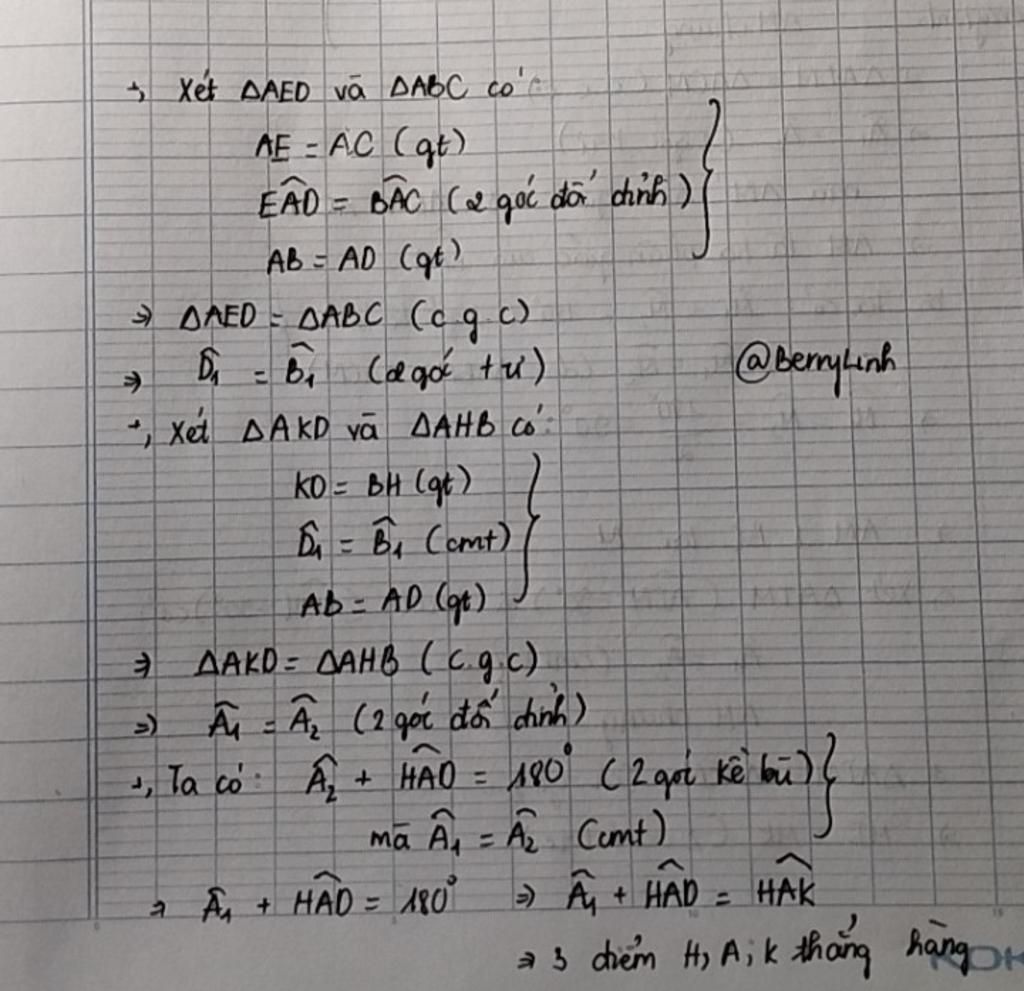 +, Xét ΔAED và ΔABC có:
AE = AC (gt)
EÂD = BÂC (2 góc đối đỉnh)
AB = AD (gt)
⇒ ΔAED = ΔABC (c g c)
⇒ D̂₁ = B̂₁ (2 góc t ư)
@BerryLinh
+, Xét ΔAKD và ΔAHB có:
KD = BH (gt)
D̂₁ = B̂₁ (cmt)
AB = AD (gt)
⇒ ΔAKD = ΔAHB (c.g.c)
⇒ Â₁ = Â₂ (2 góc đối đỉnh)
+, Ta có: Â₂ + HÂD = 180° (2 góc kề bù)
mà Â₁ = Â₂ (cmt)
⇒ Â₁ + HÂD = 180° ⇒ Â₁ + HÂD = HÂK
⇒ 3 điểm H, A, K thẳng hàng